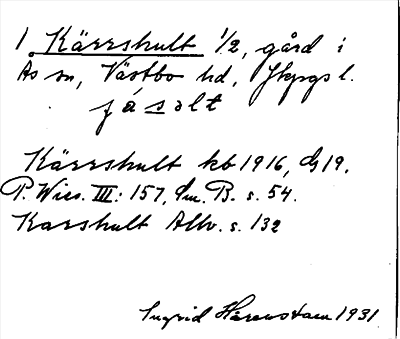 1 Kärrshult 1/2, gård i
Ås sn, Västbo hd, Jkpgs l.
fásəlt
Kärrshult kb 1916, Gs 19.
P. Wies. III: 157, Sm. B. s. 54.
Karshult Allv. s. 132
Ingrid Härenstam 1931